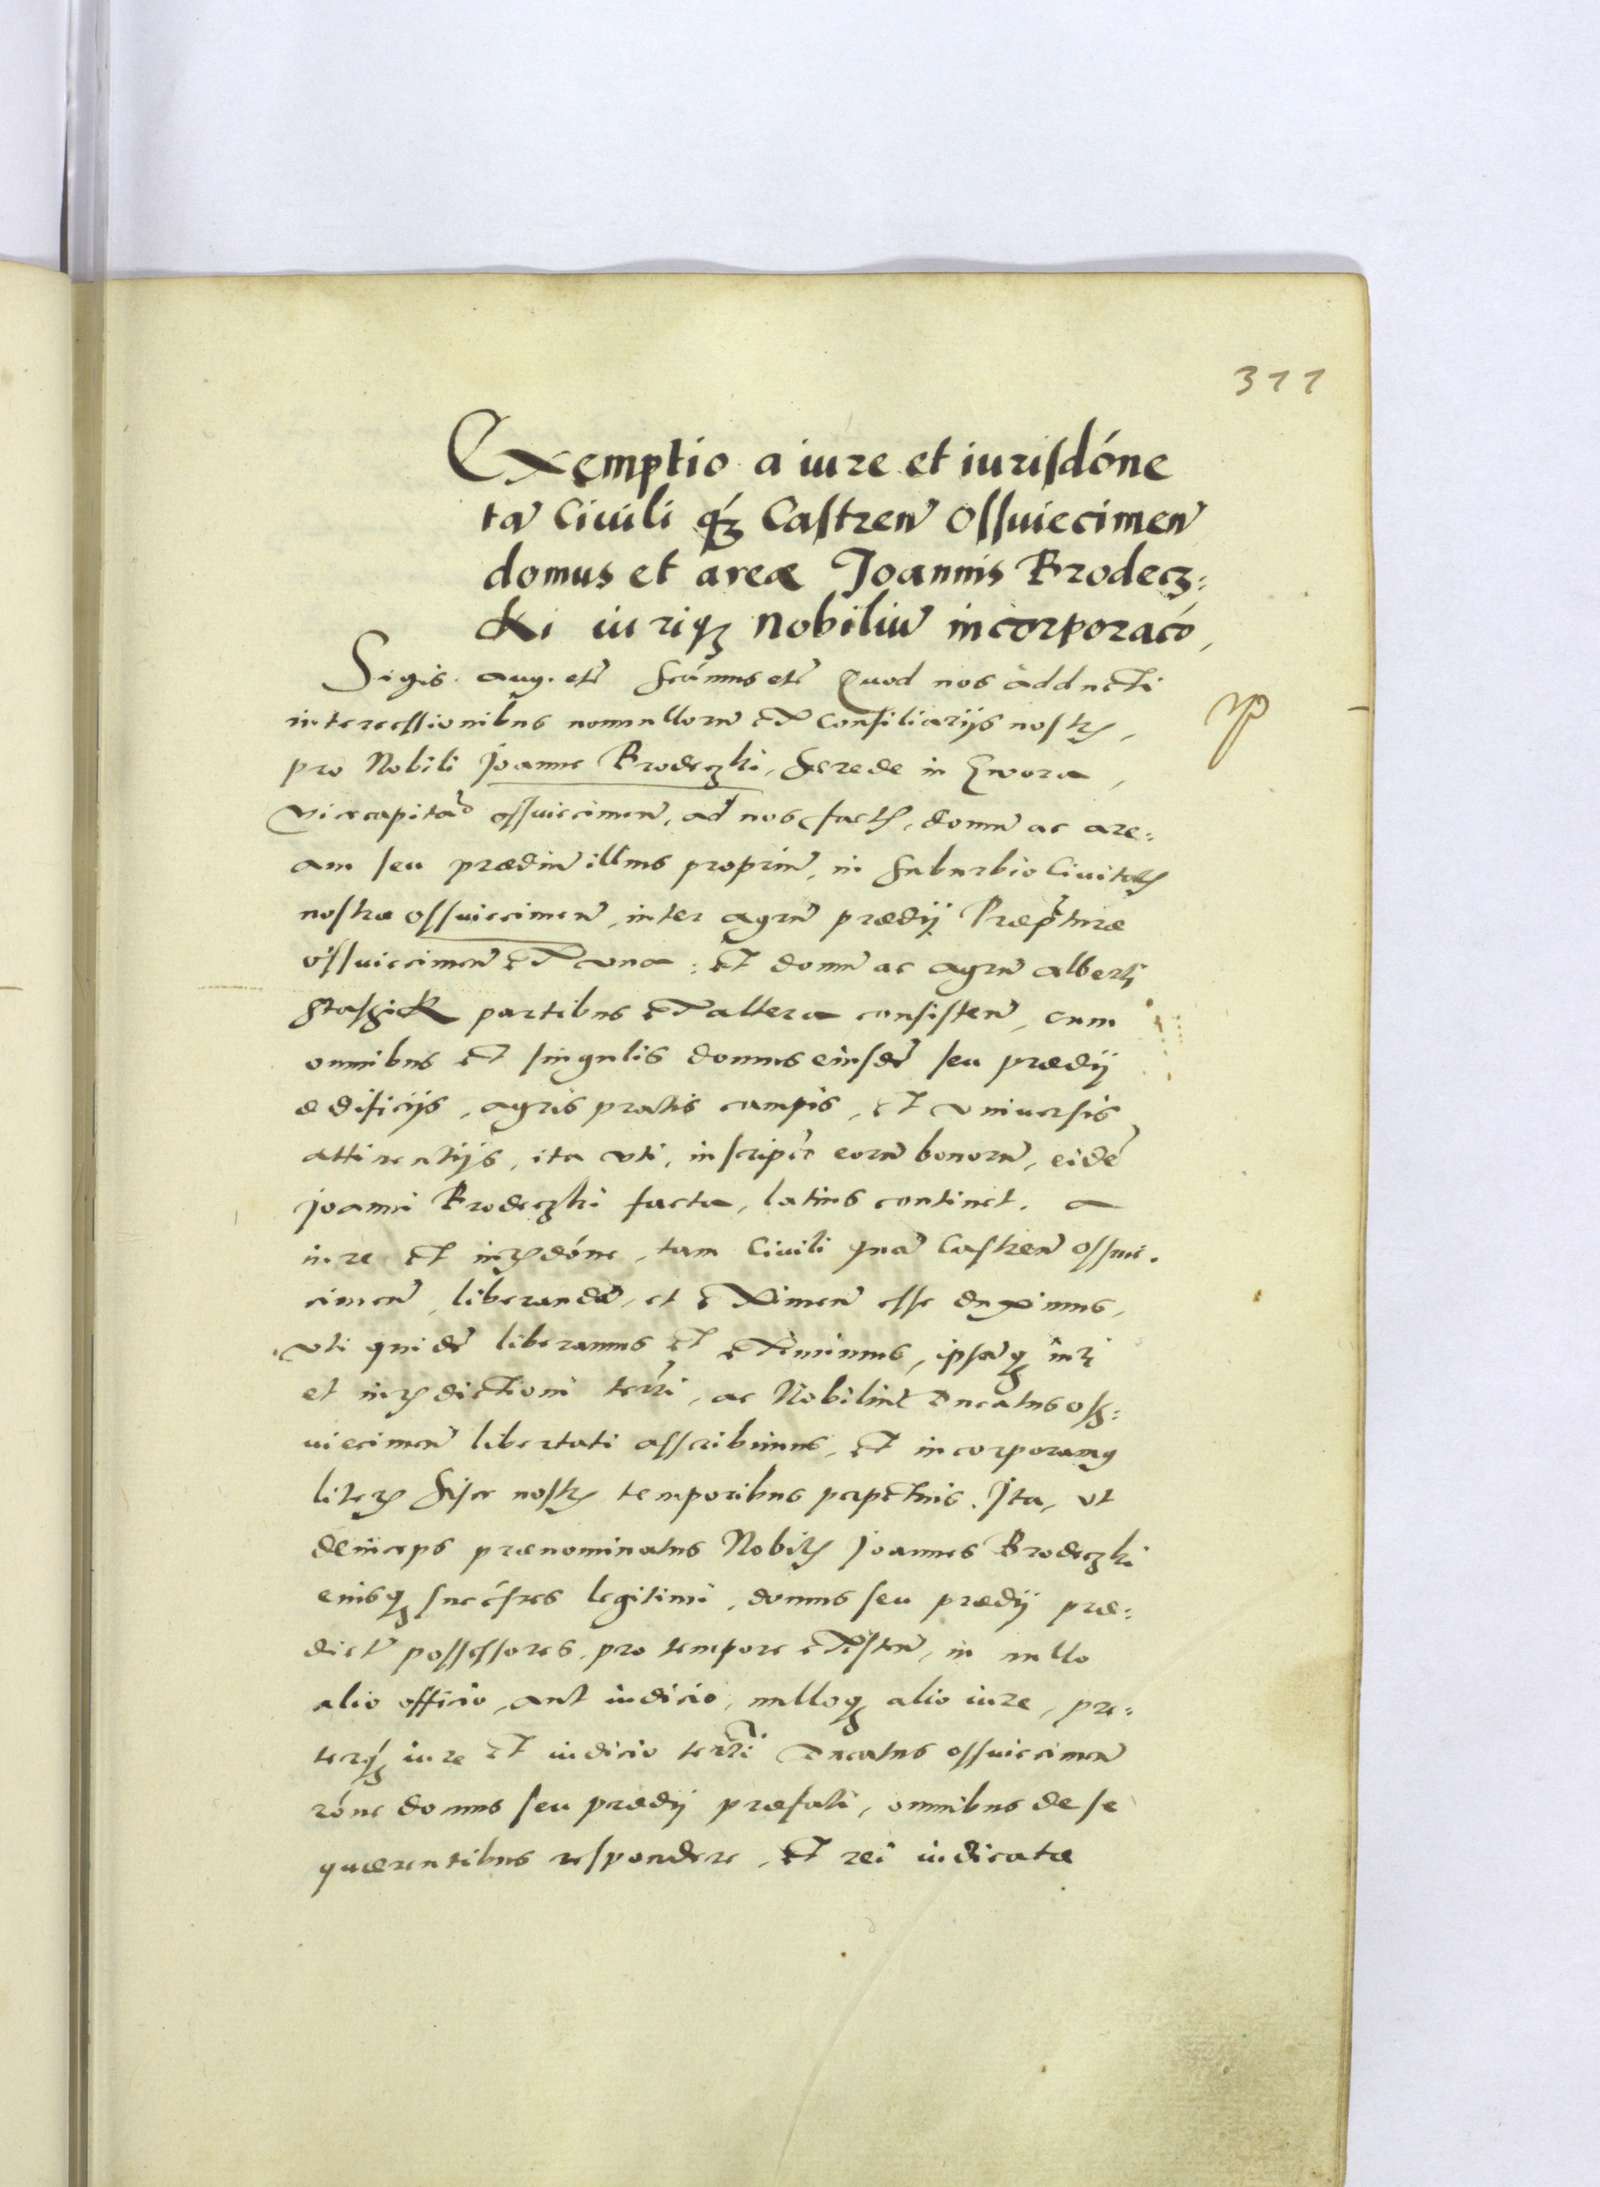 311
Exemptio a iure et iurisdóne
tã Ciuili q́ꝫ Castreñ Ossuiecimeñ
domus et areæ Joannis Brodecz:
ki iuriqꝫ Nobiliũ incorporaćo,
Sigis. aug. etc̃ Sc̃imus etc̃ Quod nos adducti
intercessionibus nonnullorũ ex consiliarijs nostrꝭ,
pro Nobili Joanne Brodeczki, herede in Zwora,
Vicecapitaõ Ossuiecimeñ, ad nos factꝭ, domũ ac are:
am seu prædiũ illius propriũ, in suburbio Ciuitatꝭ
nostræ Ossuiecimeñ, inter agrũ prædij Præp̃turæ
Ossuiecimeñ ex vna: et domũ ac agrũ Alberti
Staszick partibus ex altera consisteñ, cum
omnibus et singulis domus eiusdẽ seu prædij
ædificijs, agris pratis campis, et vniuersis
attinentijs, ita vti, inscripc̃o eorũ bonorũ, eidẽ
Joanni Brodeczki facta, latius continet. a
iure et iurꝭdóne, tam Ciuili quã Castreñ Ossuie.
cimeñ, liberandã, et eximeñ esse duximus,
vti quidẽ liberamus et eximimus, ipsãqꝫ iuri
et iurꝭdictioni terrĩ, ac Nobiliũ Ducatus Osz:
uiecimeñ libertati asscribimus, et incorporamꝰ
literꝭ hisce nostrꝭ temporibus perpetuis. Ita, vt
deinceps prænominatus Nobilꝭ Joannes Brodeczki
eiusqꝫ succ̃sres legitimi, domus seu prædij præ:
dict̃ possessores, pro tempore existeñ, in nullo
alio officio, aut iudicio, nulloqꝫ alio iure, præ:
terq́ꝫ iure et iudicio terrĩ Ducatus Ossuiecimeñ
róne domus seu prædij præfati, omnibus de se
quærentibus respondere, et rei iudicatæ